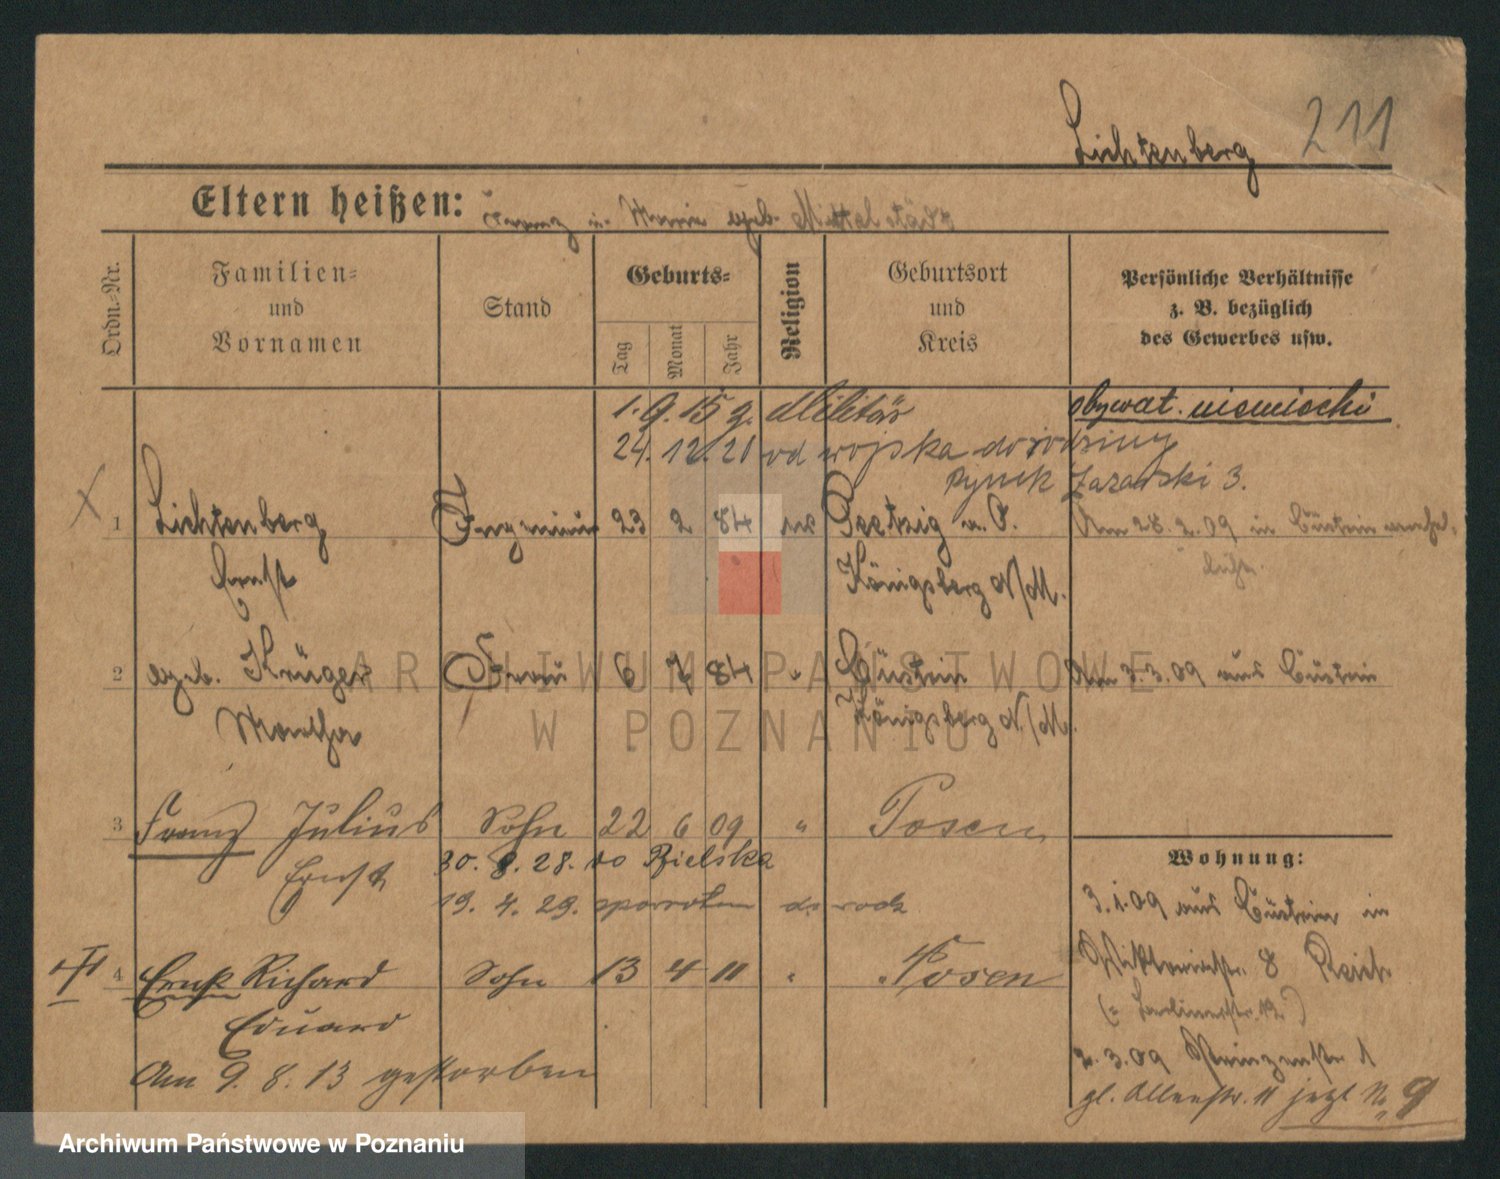 Lichtenberg 211
Eltern heißen: Franz u. Marie geb. Mittelstädt
Ordn.-Nr.
Familien-
und
Vornamen
Stand
Geburts-
Tag
Monat
Jahr
Religion
Geburtsort
und
Kreis
Persönliche Verhältnisse
z. B. bezüglich
des Gewerbes usw.
1. 9. 15 z. Militär obywat. niemiecki
24. 12. 20 od wojska do rodziny
Rynek Łazarski 3.
1 Lichtenberg 23 2 84 a. O. Am 28. 2. 09 in Cüstrin
Ernst Königsberg N/M.
2 geb. Krüger Frau 6 7 84 " Cüstrin Am 3. 3. 09 aus Cüstrin
Martha Königsberg N./M.
3 Franz Julius Sohn 22 6 09 " Posen
Ernst 30. 8. 28. do Bielska
19. 4. 29. do
4 Ernst Richard Sohn 13 4 11 " Posen
Eduard
Am 9. 8. 13 gestorben
Wohnung:
3. 1. 09 aus Cüstrin in
Viktoriastr. 8
2. 3. 09 Prinzenstr 1
jetzt No 9
ARCHIWUM PAŃSTWOWE
W POZNANIU
Archiwum Państwowe w Poznaniu